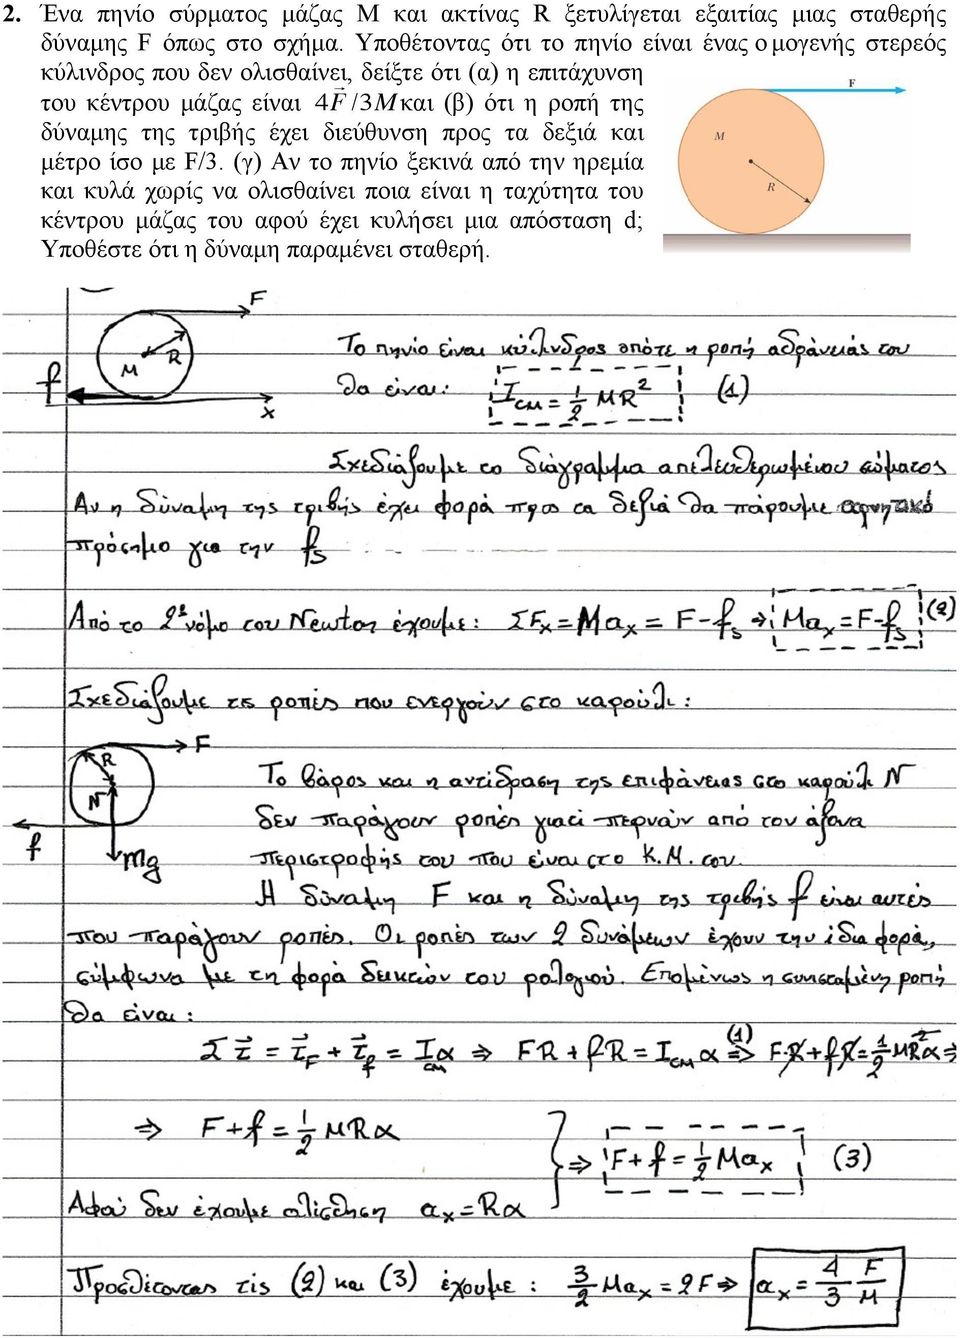 2. Ένα πηνίο σύρματος μάζας Μ και ακτίνας R ξετυλίγεται εξαιτίας μιας σταθερής
δύναμης F όπως στο σχήμα. Υποθέτοντας ότι το πηνίο είναι ένας ομογενής στερεός
κύλινδρος που δεν ολισθαίνει, δείξτε ότι (α) η επιτάχυνση
του κέντρου μάζας είναι 4F⃗/3M και (β) ότι η ροπή της
δύναμης της τριβής έχει διεύθυνση προς τα δεξιά και
μέτρο ίσο με F/3. (γ) Αν το πηνίο ξεκινά από την ηρεμία
και κυλά χωρίς να ολισθαίνει ποια είναι η ταχύτητα του
κέντρου μάζας του αφού έχει κυλήσει μια απόσταση d;
Υποθέστε ότι η δύναμη παραμένει σταθερή.
F
M
R
F
M R
f
x
Το πηνίο είναι κύλινδρος οπότε η ροπή αδράνειάς του
θα είναι: I_CM = 1/2 MR² (1)
Σχεδιάζουμε το διάγραμμα απελευθερωμένου σώματος
Αν η δύναμη της τριβής έχει φορά προς τα δεξιά θα πάρουμε αρνητικό
πρόσημο για την f_s
Από το 2º νόμο του Newton έχουμε: ΣF_x = Ma_x = F - f_s ⇒ Ma_x = F - f_s (2)
Σχεδιάζουμε τις ροπές που ενεργούν στο καρούλι:
F
R
N
f
Mg
Το βάρος και η αντίδραση της επιφάνειας στο καρούλι N
δεν παράγουν ροπές γιατί περνούν από τον άξονα
περιστροφής του που είναι στο Κ.Μ. του.
Η δύναμη F και η δύναμη της τριβής f είναι αυτές
που παράγουν ροπές. Οι ροπές των 2 δυνάμεων έχουν την ίδια φορά,
σύμφωνα με τη φορά δεικτών του ρολογιού. Επομένως η συνισταμένη ροπή
θα είναι:
Στ⃗ = τ⃗_F + τ⃗_f = I_CM α ⇒ FR + fR = I_CM α (1)⇒ F·R + fR = 1/2 MR²α ⇒
⇒ F + f = 1/2 MRα
⇒ F + f = 1/2 Ma_x (3)
Αφού δεν έχουμε ολίσθηση a_x = Rα
Προσθέτοντας τις (2) και (3) έχουμε: 3/2 Ma_x = 2F ⇒ a_x = 4/3 F/M